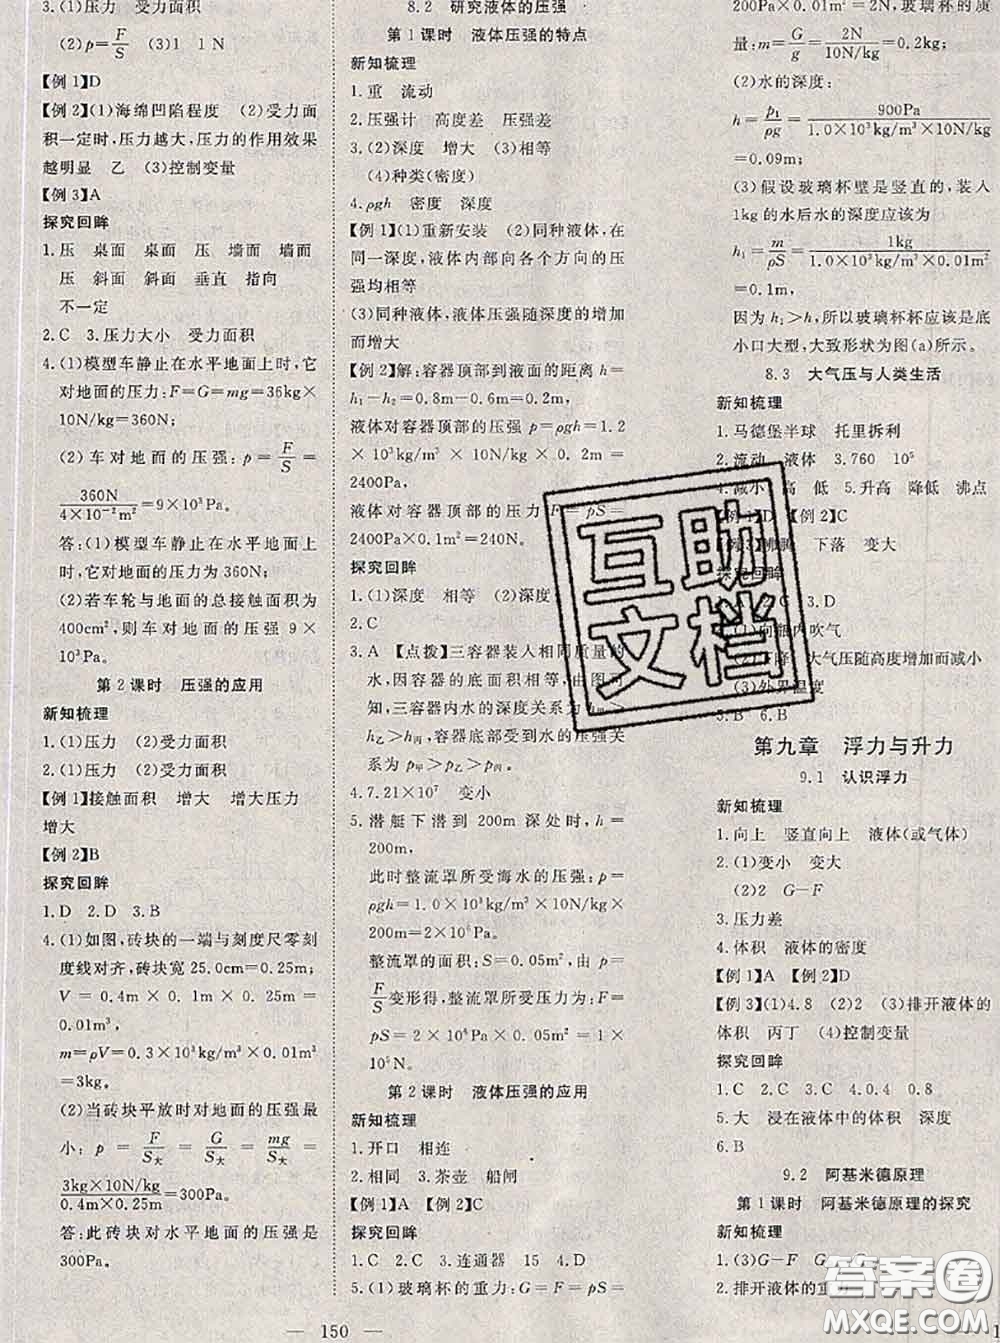 3.(1)压力 受力面积
(2)p=F/S (3)1 1N
【例1】D
【例2】(1)海绵凹陷程度 (2)受力面
积一定时,压力越大,压力的作用效果
越明显 乙 (3)控制变量
【例3】A
探究回眸
1.压 桌面 桌面 压 墙面 墙面
压 斜面 斜面 垂直 指向
不一定
2.C 3.压力大小 受力面积
4.(1)模型车静止在水平地面上时,它
对地面的压力:F=G=mg=36kg
×10N/kg=360N;
(2)车对地面的压强:p=F/S=
360N/4×10⁻²m²=9×10³Pa.
答:(1)模型车静止在水平地面上
时,它对地面的压力为360N;
(2)若车轮与地面的总接触面积为
400cm²,则车对地面的压强9×
10³Pa.
第2课时 压强的应用
新知梳理
1.(1)压力 (2)受力面积
2.(1)压力 (2)受力面积
【例1】接触面积 增大 增大压力
增大
【例2】B
探究回眸
1.D 2.D 3.B
4.(1)如图,砖块的一端与刻度尺零刻
度线对齐,砖块宽25.0cm=0.25m;
V=0.4m×0.1m×0.25m=
0.01m³,
m=ρV=0.3×10³kg/m³×0.01m³
=3kg.
(2)当砖块平放时对地面的压强最
小:p=F/S大=G/S大=mg/S大=
3kg×10N/kg/0.4m×0.25m=300Pa.
答:此砖块对水平地面的压强是
300Pa.
8.2 研究液体的压强
第1课时 液体压强的特点
新知梳理
1.重 流动
2.压强计 高度差 压强差
3.(2)深度 增大 (3)相等
(4)种类(密度)
4.ρgh 密度 深度
【例1】(1)重新安装 (2)同种液体,在
同一深度,液体内部向各个方向的压
强均相等
(3)同种液体,液体压强随深度的增加
而增大
【例2】解:容器顶部到液面的距离h=
h₁-h₂=0.8m-0.6m=0.2m,
液体对容器顶部的压强p=ρgh=1.2
×10³kg/m³×10N/kg×0.2m=
2400Pa,
液体对容器顶部的压力F=pS=
2400Pa×0.1m²=240N.
探究回眸
1.(1)深度 相等 (2)深度
2.C
3.A 【点拨】三容器装入相同质量的
水,因容器的底面积相等,由图可
知,三容器内水的深度关系为h甲>
h乙>h丙,容器底部受到水的压强关
系为p甲>p乙>p丙.
4.7.21×10⁷ 变小
5.潜艇下潜到200m深处时,h=
200m,
此时整流罩所受海水的压强:p=
ρgh=1.0×10³kg/m³×10N/kg×
200m=2×10⁶Pa.
整流罩的面积:S=0.05m²,由p=
F/S变形得,整流罩所受压力为:F=
pS=2×10⁶Pa×0.05m²=1×
10⁵N.
第2课时 液体压强的应用
新知梳理
1.开口 相连
2.相同 3.茶壶 船闸
【例1】A 【例2】C
探究回眸
1.C 2.C 3.连通器 15 4.D
5.(1)玻璃杯的重力:G=F=pS=
200Pa×0.01m²=2N,玻璃杯的质
量:m=G/g=2N/10N/kg=0.2kg;
(2)水的深度:
h=p₁/ρg=900Pa/1.0×10³kg/m³×10N/kg=
0.09m;
(3)假设玻璃杯壁是竖直的,装入
1kg的水后水的深度应该为
h₁=m/ρS=1kg/1.0×10³kg/m³×0.01m²=
0.1m,
因为h₁>h,所以玻璃杯杯应该是底
小口大型,大致形状为图(a)所示.
8.3 大气压与人类生活
新知梳理
1.马德堡半球 托里拆利
2.流动 液体 3.760 10⁵
4.减小 高 低 5.升高 降低 沸点
【例1】D 【例2】C
【例3】沸腾 下落 变大
探究回眸
C 3.D
(1)向瓶内吹气
(2)下降 大气压随高度增加而减小
(3)外界温度
5.B 6.B
第九章 浮力与升力
9.1 认识浮力
新知梳理
1.向上 竖直向上 液体(或气体)
2.(1)变小 变大
(2)2 G-F
3.压力差
4.体积 液体的密度
【例1】A 【例2】D
【例3】(1)4.8 (2)2 (3)排开液体的
体积 丙丁 (4)控制变量
探究回眸
1.C 2.C 3.C 4.0.4 0.8
5.大 浸在液体中的体积 深度
6.B
9.2 阿基米德原理
第1课时 阿基米德原理的探究
新知梳理
1.(3)G-F G
2.排开液体的重力
— 150 —
互助
文档
答案圈
MXQE.COM